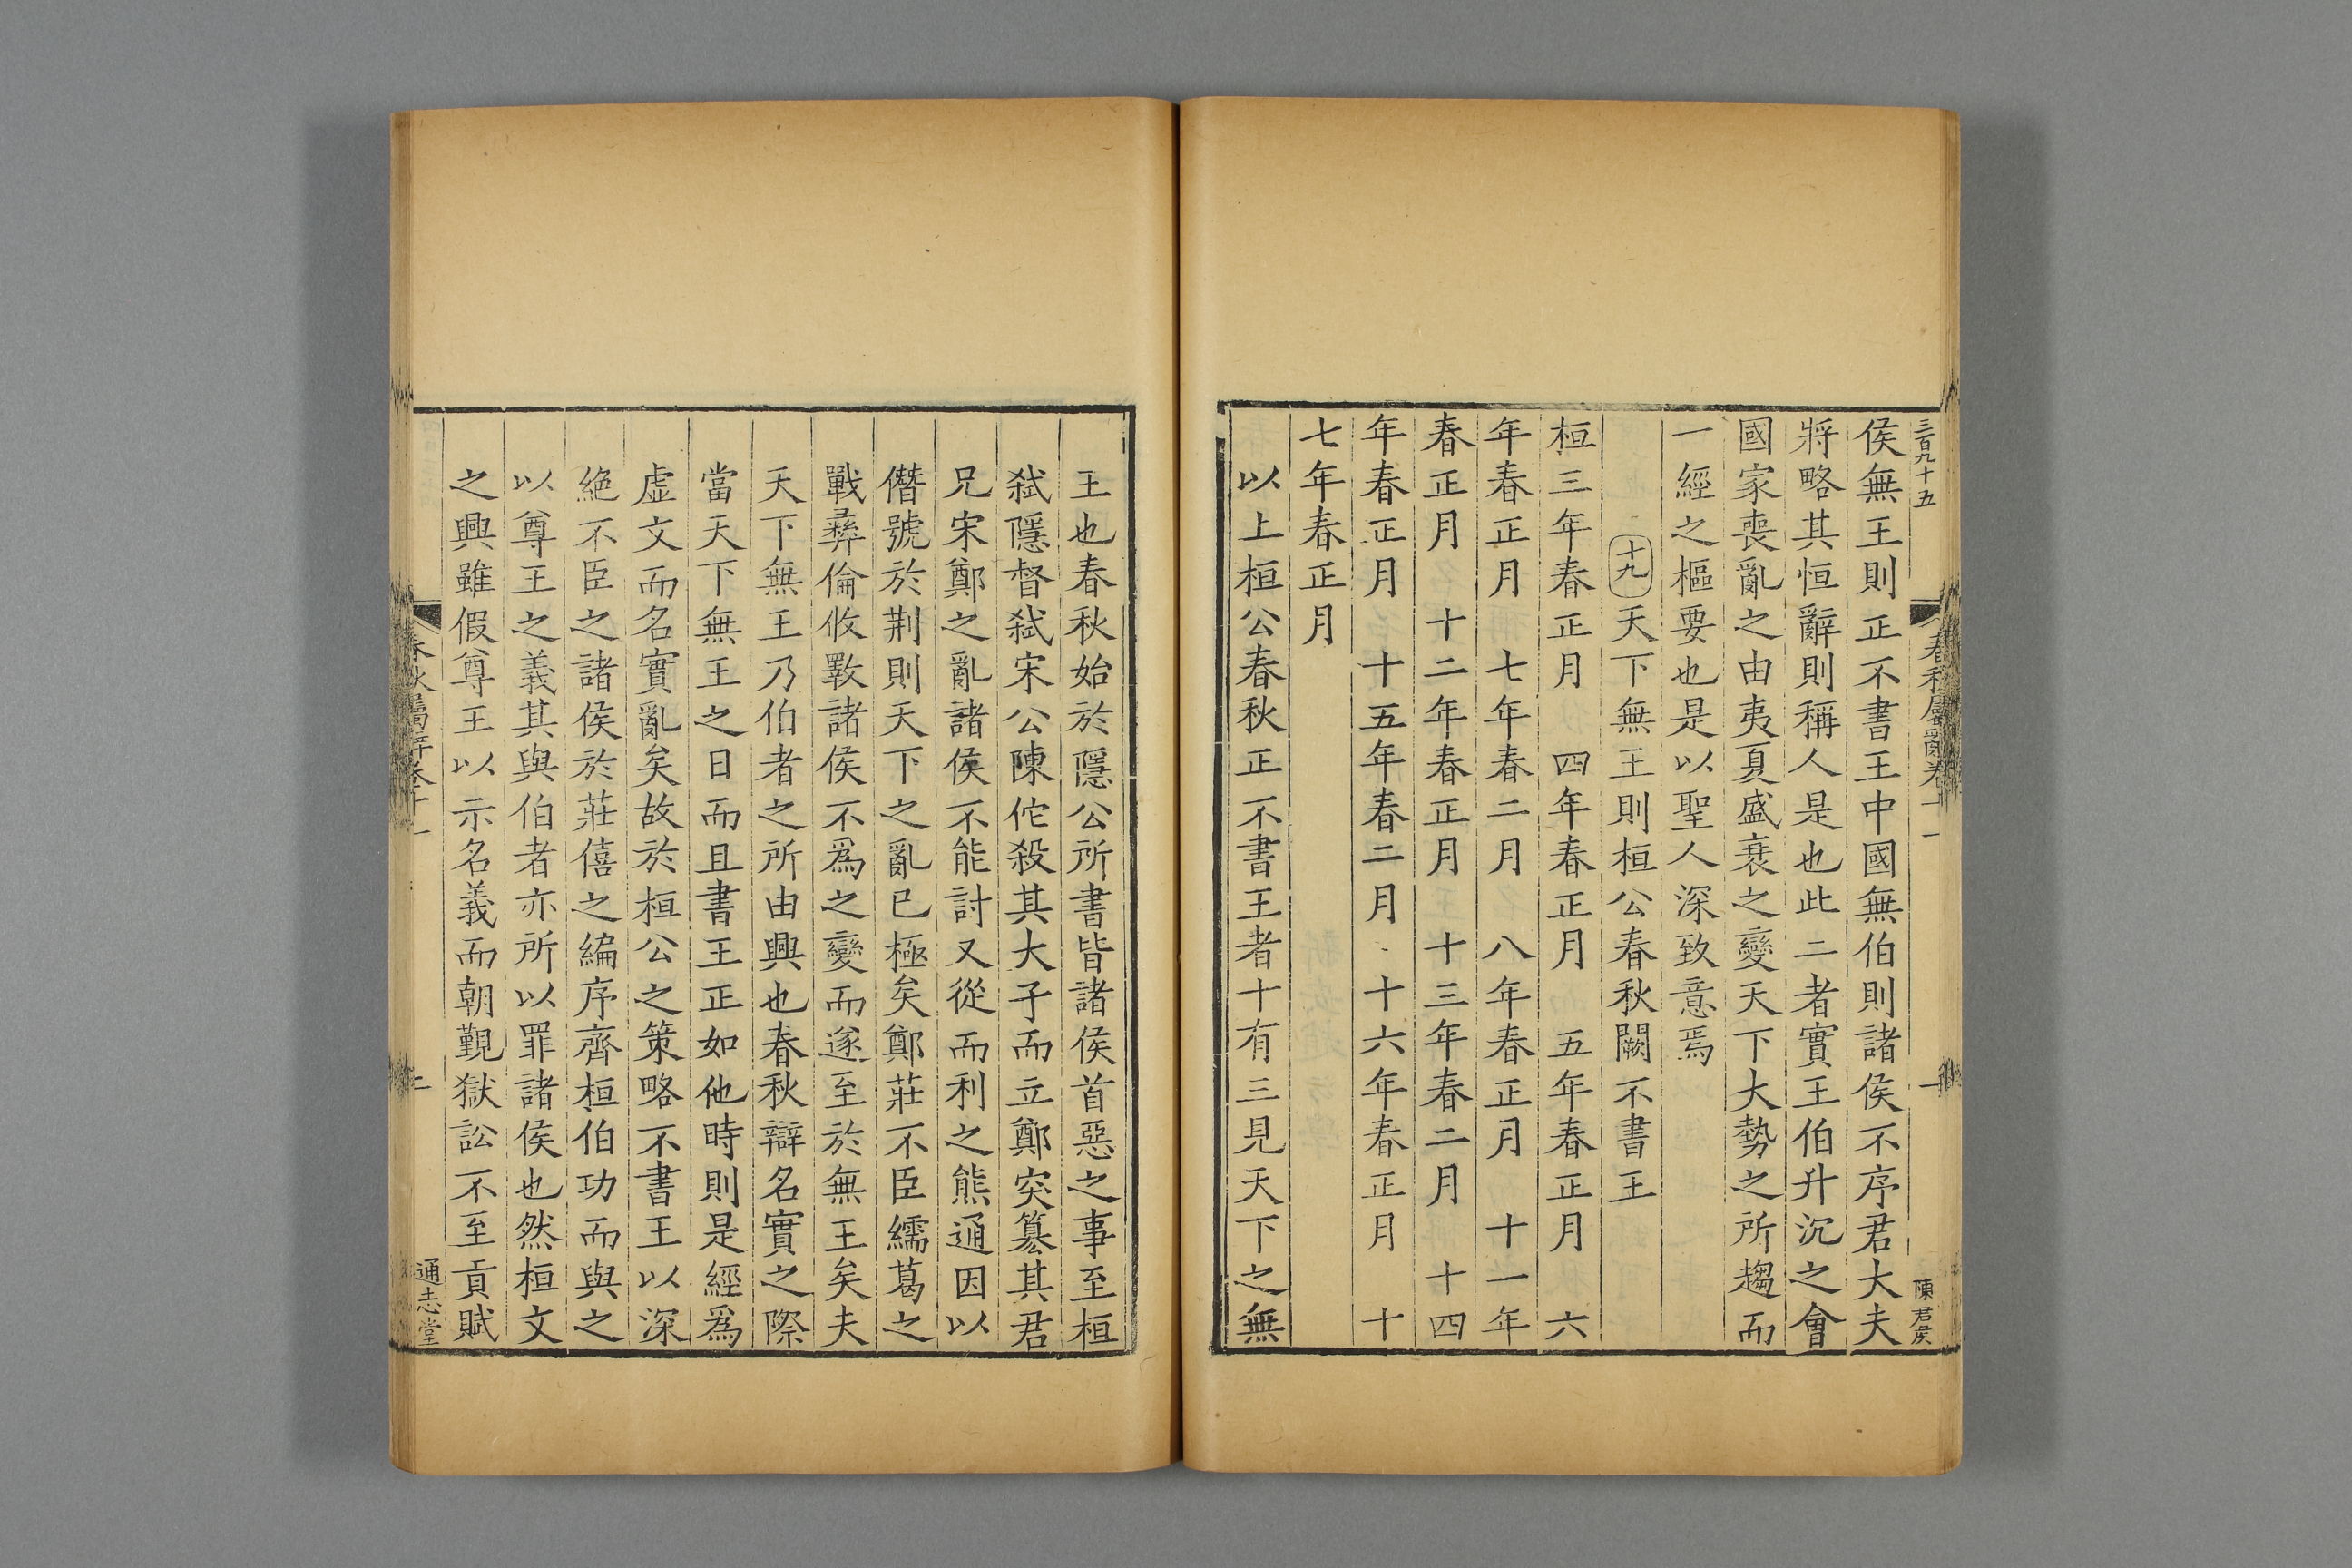 三百九十五
春秋屬辭卷十一
一
陳君侯
侯無王則正不書王中國無伯則諸侯不序君大夫
將略其恒辭則稱人是也此二者實王伯升沉之會
國家喪亂之由夷夏盛衰之變天下大勢之所趨而
一經之樞要也是以聖人深致意焉
十九天下無王則桓公春秋闕不書王
桓三年春正月 四年春正月 五年春正月 六
年春正月 七年春二月 八年春正月 十一年
春正月 十二年春正月 十三年春二月 十四
年春正月 十五年春二月 十六年春正月 十
七年春正月
以上桓公春秋正不書王者十有三見天下之無
王也春秋始於隱公所書皆諸侯首惡之事至桓
弑隱督弑宋公陳佗殺其大子而立鄭突篡其君
兄宋鄭之亂諸侯不能討又從而利之熊通因以
僭號於荆則天下之亂已極矣鄭莊不臣繻葛之
戰彝倫攸斁諸侯不爲之變而遂至於無王矣夫
天下無王乃伯者之所由興也春秋辯名實之際
當天下無王之日而且書王正如他時則是經爲
虚文而名實亂矣故於桓公之策略不書王以深
絶不臣之諸侯於莊僖之編序齊桓伯功而與之
以尊王之義其與伯者亦所以罪諸侯也然桓文
之興雖假尊王以示名義而朝覲獄訟不至貢賦
春秋屬辭卷十一
二
通志堂